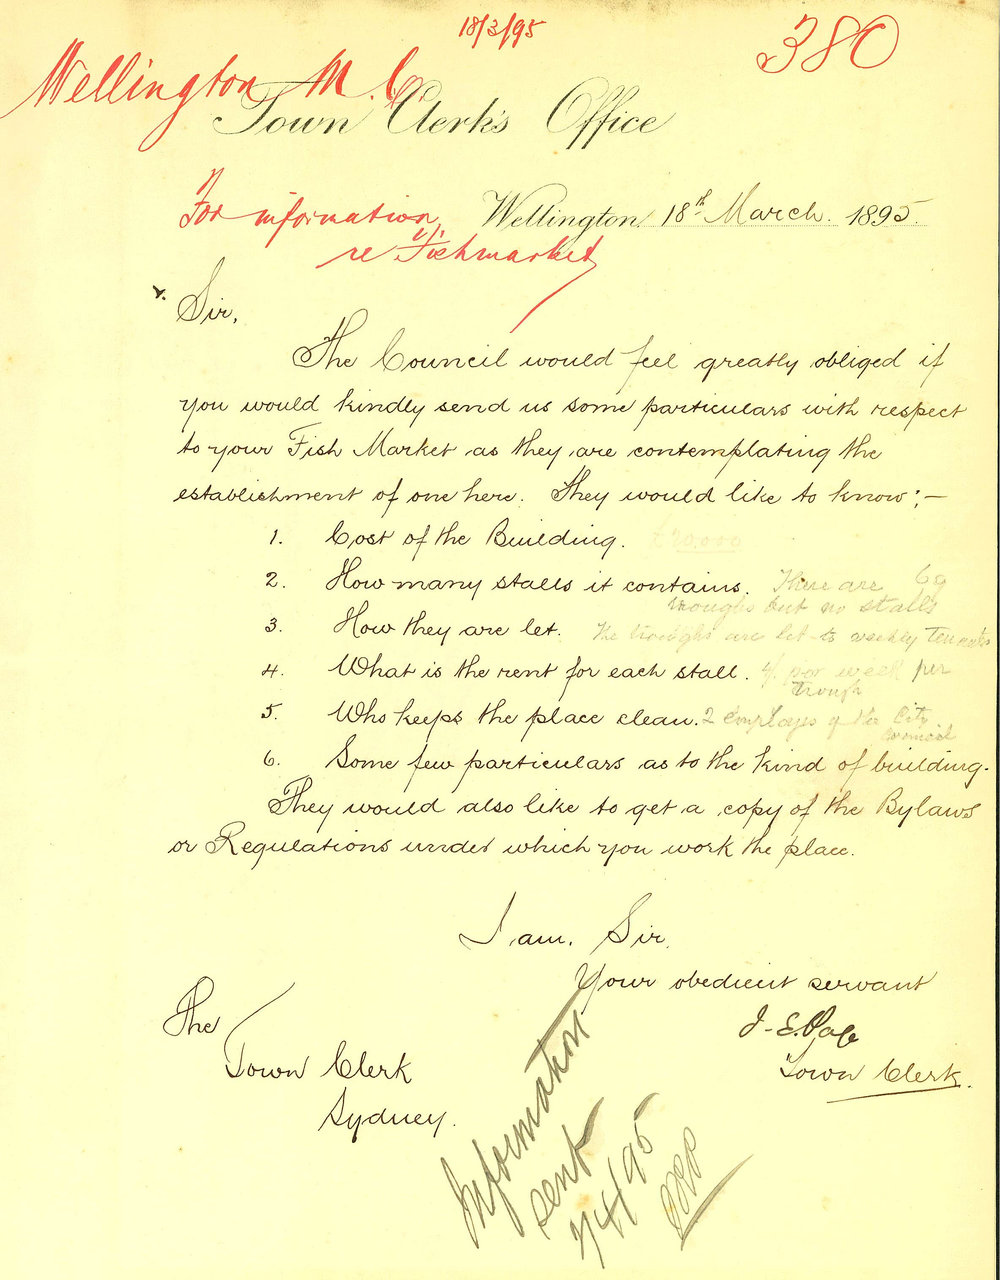 18/3/95
380
Wellington M.C.
Town Clerk's Office
For information
Wellington 18th March. 1895.
re Fishmarket
Sir,
The Council would feel greatly obliged if
you would kindly send us some particulars with respect
to your Fish Market as they are contemplating the
establishment of one here. They would like to know:—
1. Cost of the Building. £20,000
2. How many stalls it contains. There are 69
troughs but no stalls
3. How they are let. The troughs are let to weekly tenants
4. What is the rent for each stall. 4/. per week per
trough
5. Who keeps the place clean. 2 employes of the City
Council
6. Some few particulars as to the kind of building.
They would also like to get a copy of the Bylaws
or Regulations under which you work the place.
I am, Sir,
Your obedient servant
J. E. Page
Town Clerk.
The
Town Clerk
Sydney.
Information
sent
/4/95